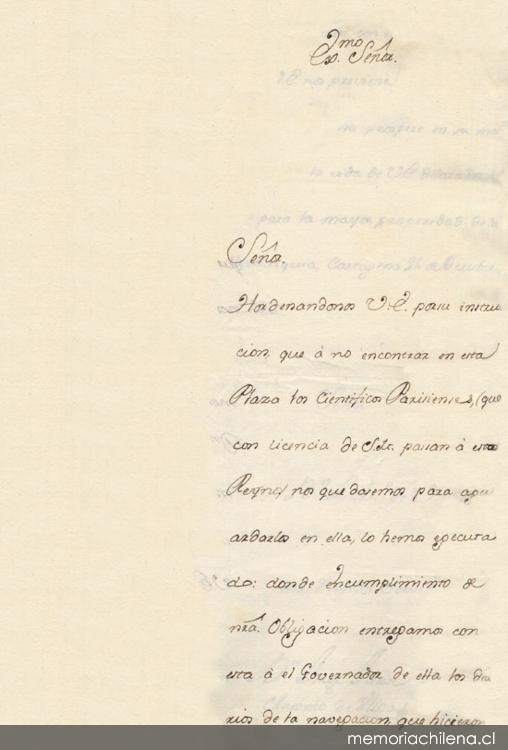 Exmo. Señor.
Señor.
Hordenandonos V.E. por su instru
cion, que â no encontrar en esta
Plaza los Cientificos Parisienses, (que
con licencia de S.M. pasan â este
Reyno) nos quedasemos para agu
ardarlos en ella, lo hemos egecuta
do: donde en cumplimiento de
nrâ. Obligacion entregamos con
esta â el Governador de ella los dia
rios de la navegacion, que hicieron
memoriachilena.cl